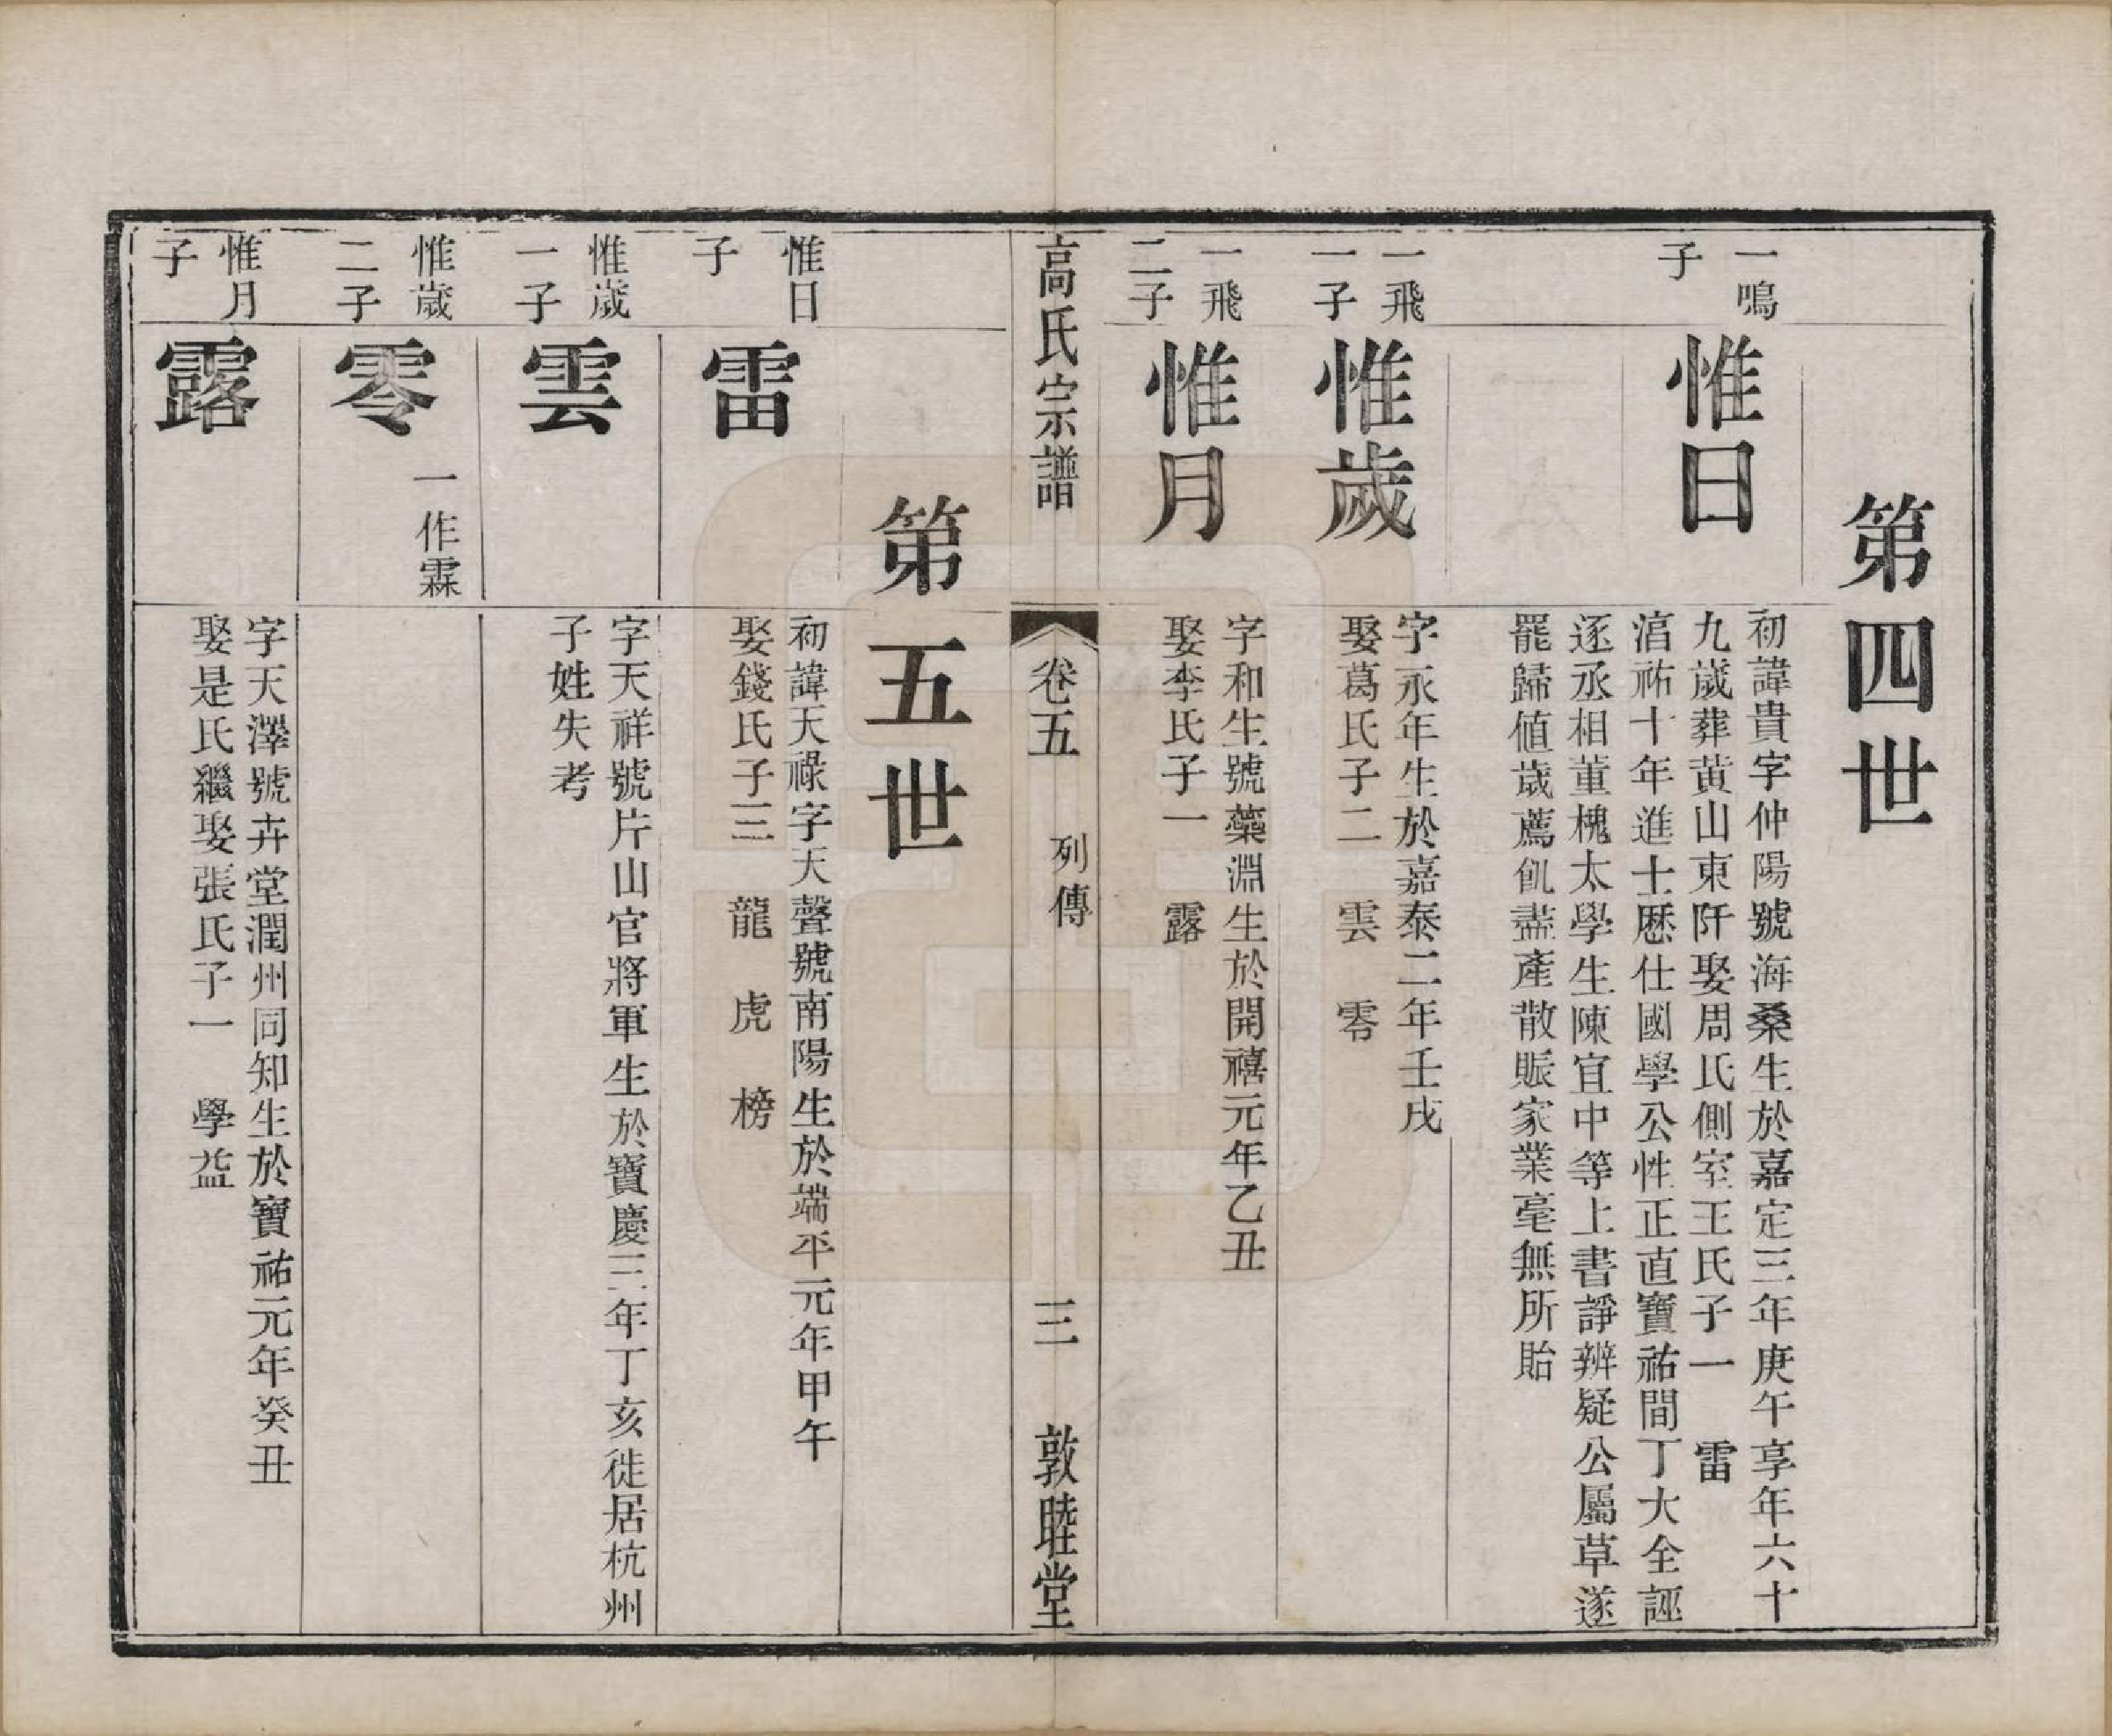 第四世
一鳴
子
惟日
初諱貴字仲陽號海桑生於嘉定三年庚午享年六十
九歲葬黃山東阡娶周氏側室王氏子一　雷
淐祐十年進士歷仕國學公性正直寶祐間丁大全誣
逐丞相董槐太學生陳宜中等上書諍辨疑公屬草遂
罷歸値歲薦飢盡產散賑家業毫無所貽
一飛
一子
惟歲
字永年生於嘉泰二年壬戌
娶葛氏子二　雲　零
一飛
二子
惟月
字和生號藥淵生於開禧元年乙丑
娶李氏子一　露
高氏宗譜
卷五
列傳
三
敦睦堂
第五世
惟日
子
雷
初諱天祿字天聲號南陽生於端平元年甲午
娶錢氏子三　龍　虎　榜
惟歲
一子
雲
字天祥號片山官將軍生於寶慶三年丁亥徙居杭州
子姓失考
惟歲
二子
零
一作霖
惟月
子
露
字天澤號卉堂潤州同知生於寶祐元年癸丑
娶是氏繼娶張氏子一　學益